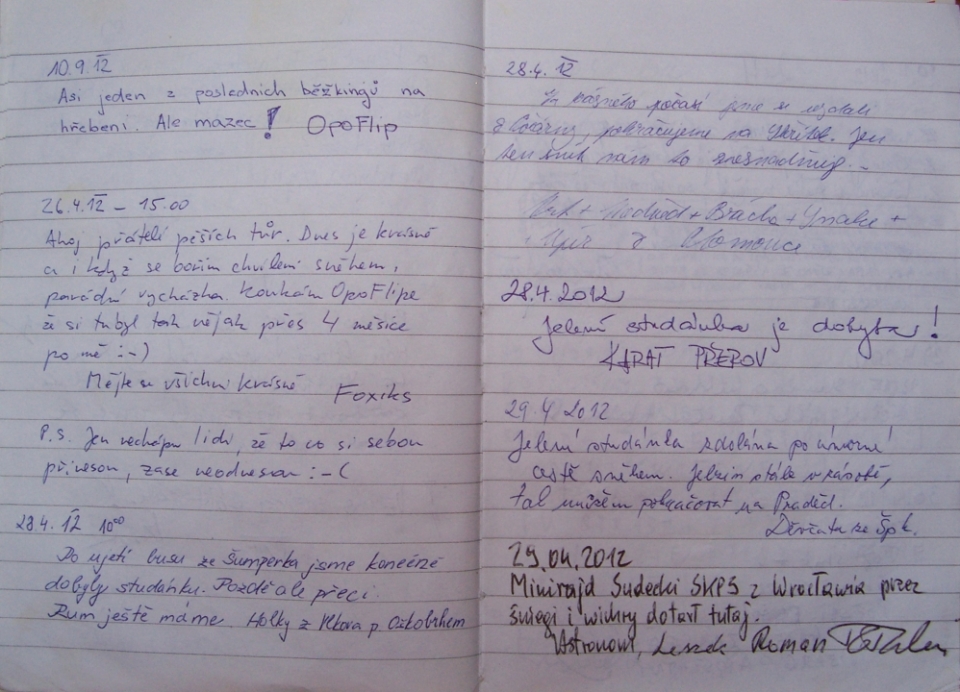 10.9.12
Asi jeden z posledních běžkingů na
hřebeni. Ale mazec! OpoFlip
26.4.12 – 15.00
Ahoj přátelí pěších túr. Dnes je krásně
a i když se bořím chvílemi sněhem,
parádní vycházka. Koukám OpoFlipe
že si tu byl tak nějak přes 4 měsíce
po mě :-)
Mějte se všichni krásně Foxiks
P.S. Jen nechápu lidi, že to co si sebou
přinesou, zase neodnesou :-(
28.4. 12 10⁰⁰
Po ujetí busu ze Šumperka jsme konečně
dobyly studánku. Pozdě ale přeci.
Rum ještě máme. Holky z p.
28.4. 12
počasí jsme se
pokračujeme na Jen
ten sníh nám to
+ + Brácha + +
z Olomouce
28.4.2012
Jelení studánka je dobyta!
KARAT PŘEROV
29.4 2012
Jelení studánka zdolána po úmorné
cestě sněhem. stále v
tak můžem pokračovat na Praděd.
Děvčata ze Špk.
29.04.2012
Minirajd Sudecki SKPS z Wrocławia przez
śniegi i wichry dotarł tutaj.
Astronom, Leszek Roman